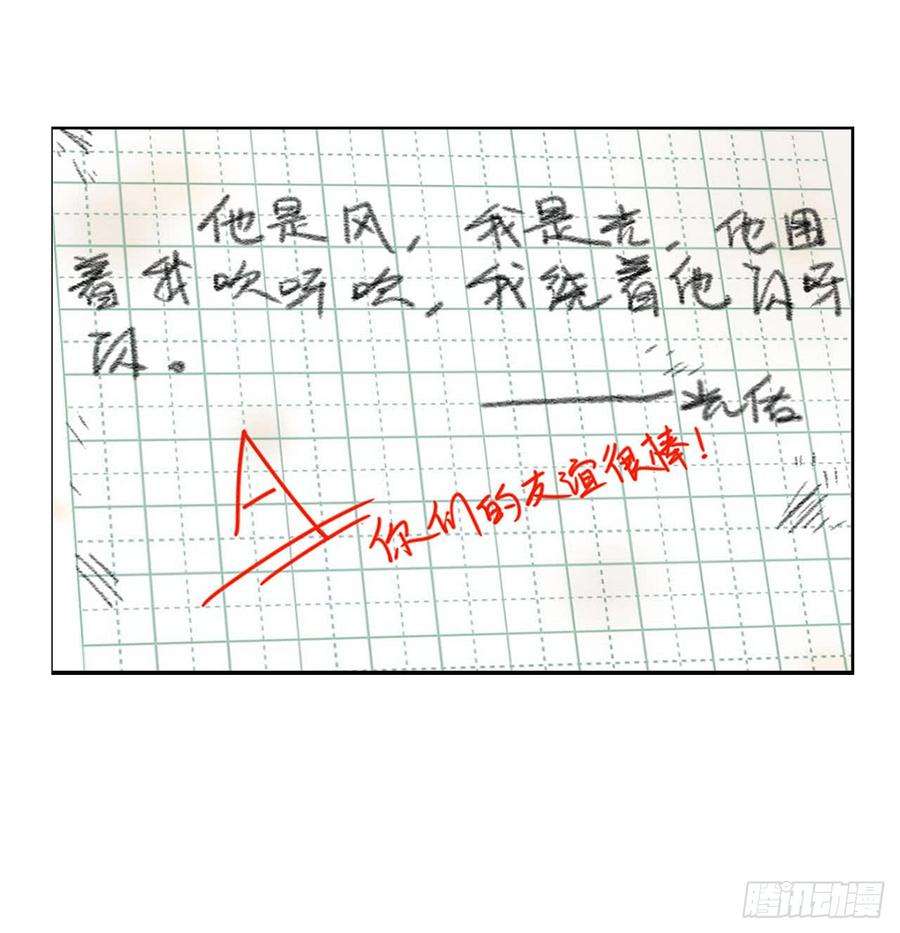 他是风，我是光，他围
着我吹呀吹，我绕着他闪呀
闪。
——光佑
A
你们的友谊很棒！
腾讯动漫